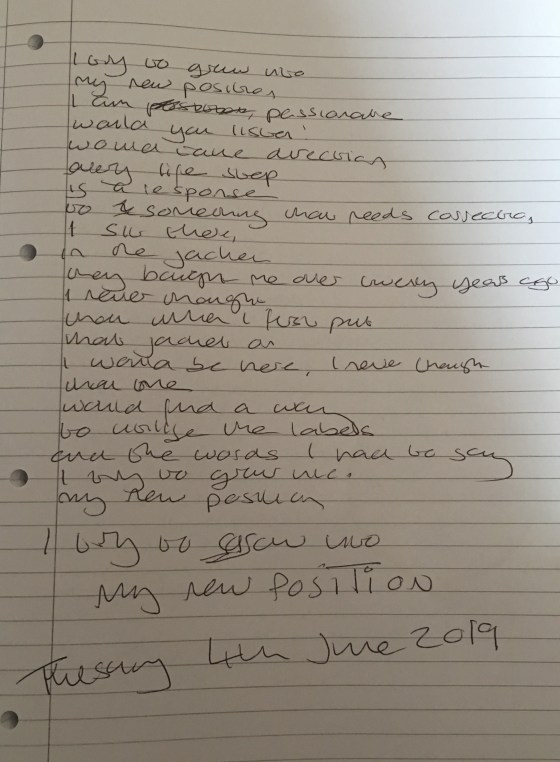 I try to grow into
my new position
I am position, passionate
would you listen
would take direction
every life step
is a response
to something that needs correcting,
I sit there,
in the jacket
they bought me over twenty years ago
I never thought
that when I first put
that jacket on
I would be here, I never though
that one
would find a way
to utilise the labels
and the words I had to say
I try to grow into.
my new position
I try to grow into
My new POSITION
Tuesday 4th June 2019